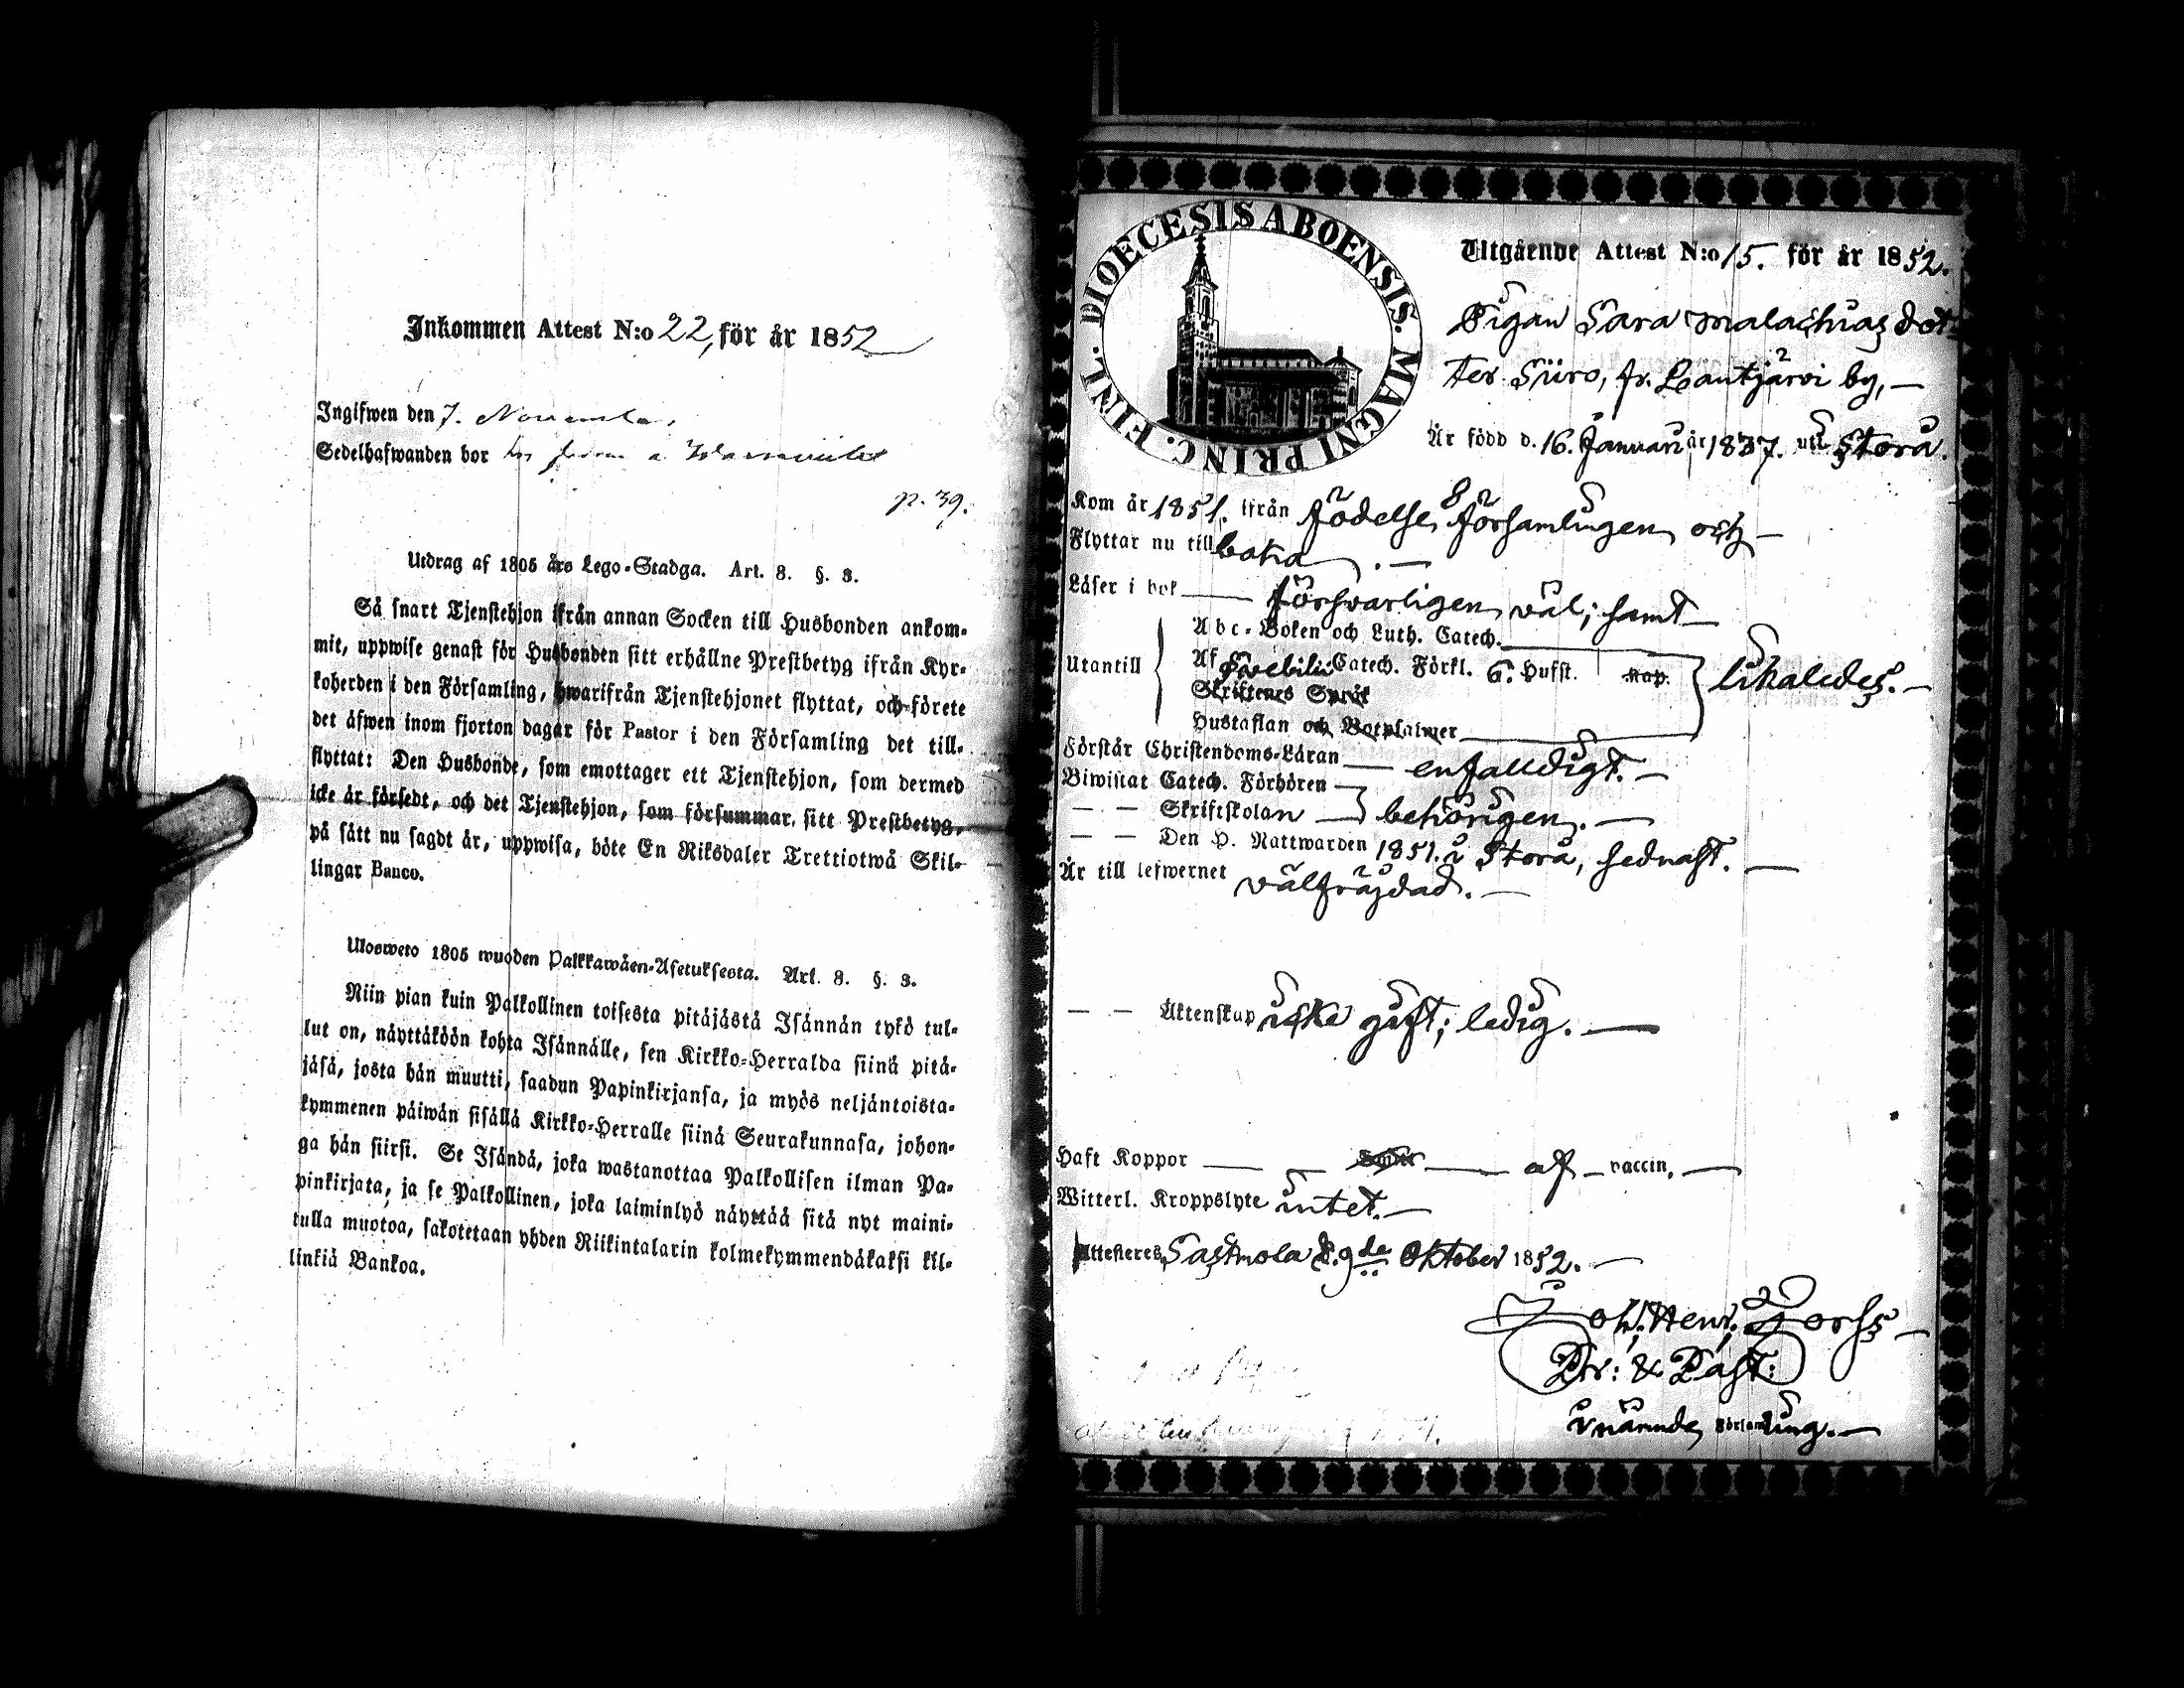 Inkommen Attest N:o 22, för år 1852
Ingifwen den 7. November,
Sedelhafwanden bor hos
p. 39.
Utdrag af 1805 års Lego-Stadga. Art. 8. §. 3.
Så snart Tjenstehjon ifrån annan Socken till Husbonden ankom-
mit, uppwise genast för Husbonden sitt erhållne Prestbetyg ifrån Kyr-
koherden i den Församling, hwarifrån Tjenstehjonet flyttat, och förete
det äfwen inom fjorton dagar för Pastor i den Församling det till-
flyttat: Den Husbonde, som emottager ett Tjenstehjon, som dermed
icke är försedt, och det Tjenstehjon, som försummar, sitt Prestbetyg,
på sätt nu sagdt är, uppwisa, böte En Riksdaler Trettiotwå Skil-
lingar Banco.
Ulosweto 1805 wuoden Palkkawäen-Asetuksesta. Art. 8. §. 3.
Niin pian kuin Palkollinen toisesta pitäjästä Isännän tykö tul-
lut on, näyttäköön kohta Isännälle, sen Kirkko-Herralda siinä pitä-
jäsä, josta hän muutti, saadun Papinkirjansa, ja myös neljäntoista-
kymmenen päiwän sisällä Kirkko-Herralle siinä Seurakunnasa, johon-
ga hän siirsi. Se Isändä, joka wastanottaa Palkollisen ilman Pa-
pinkirjata, ja se Palkollinen, joka laiminlyö näyttää sitä nyt maini-
tulla muotoa, sakotetaan yhden Riikintalarin kolmekymmendäkaksi kil-
linkiä Bankoa.
DIOECESIS ABOENSIS. MAGNI PRINC. FINL.
Utgående Attest N:o 15. för år 1852.
Pigan Sara Malachias dot-
ter Siiro, fr. Lantjärvi by, —
Är född d. 16. Januari år 1837. uti Storå.
Kom år 1851. ifrån födelse församlingen, och —
Flyttar nu till
Läser i bok — försvarligen, väl; samt —
Utantill
Abc-Boken och Luth. Catech.
Af Svebilii Catech. Förkl. 6. Hufst. Kap.
likaledes. —
Skriftenes Språk
Hustaflan och Botpsalmer
Förstår Christendoms-Läran — enfalldigt. —
Biwistat Catech. Förhören —
— — Skriftskolan — behörigen. —
— — Den H. Nattwarden 1851. i Storå, sednast. —
Är till lefwernet välfräjdad. —
— — Äktenskap icke gift; ledig. —
Haft Koppor — — — af — vaccin. —
Witterl. Kroppslyte intet. —
Attesteres Sastmola d. 9de Oktober 1852. —
Joh. Henr. Forss —
Pr: & Past:
i nämnde Församling. —